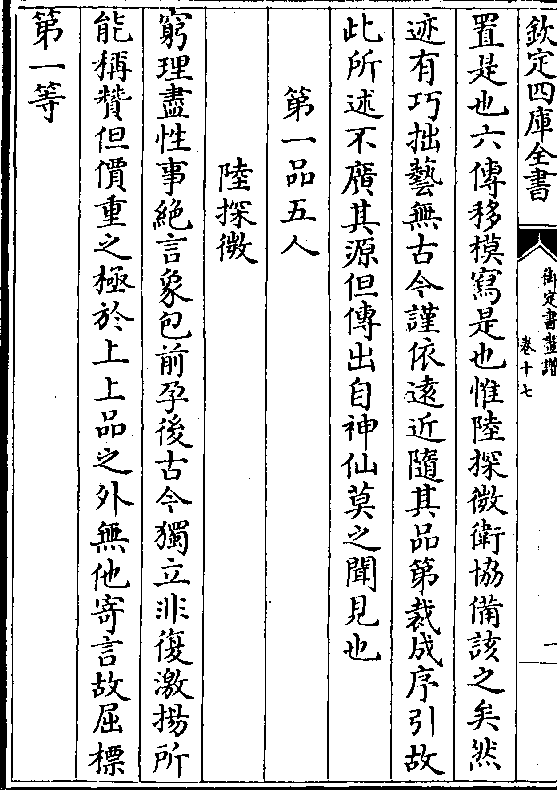 欽定四庫全書
御定書畫譜
卷十七
一
置是也六傳移模寫是也惟陸探微衛協備該之矣然
迹有巧拙藝無古今謹依遠近隨其品第裁成序引故
此所述不廣其源但傳出自神仙莫之聞見也
第一品五人
陸探微
窮理盡性事絶言象包前孕後古今獨立非復激揚所
能稱贊但價重之極於上上品之外無他寄言故屈標
第一等